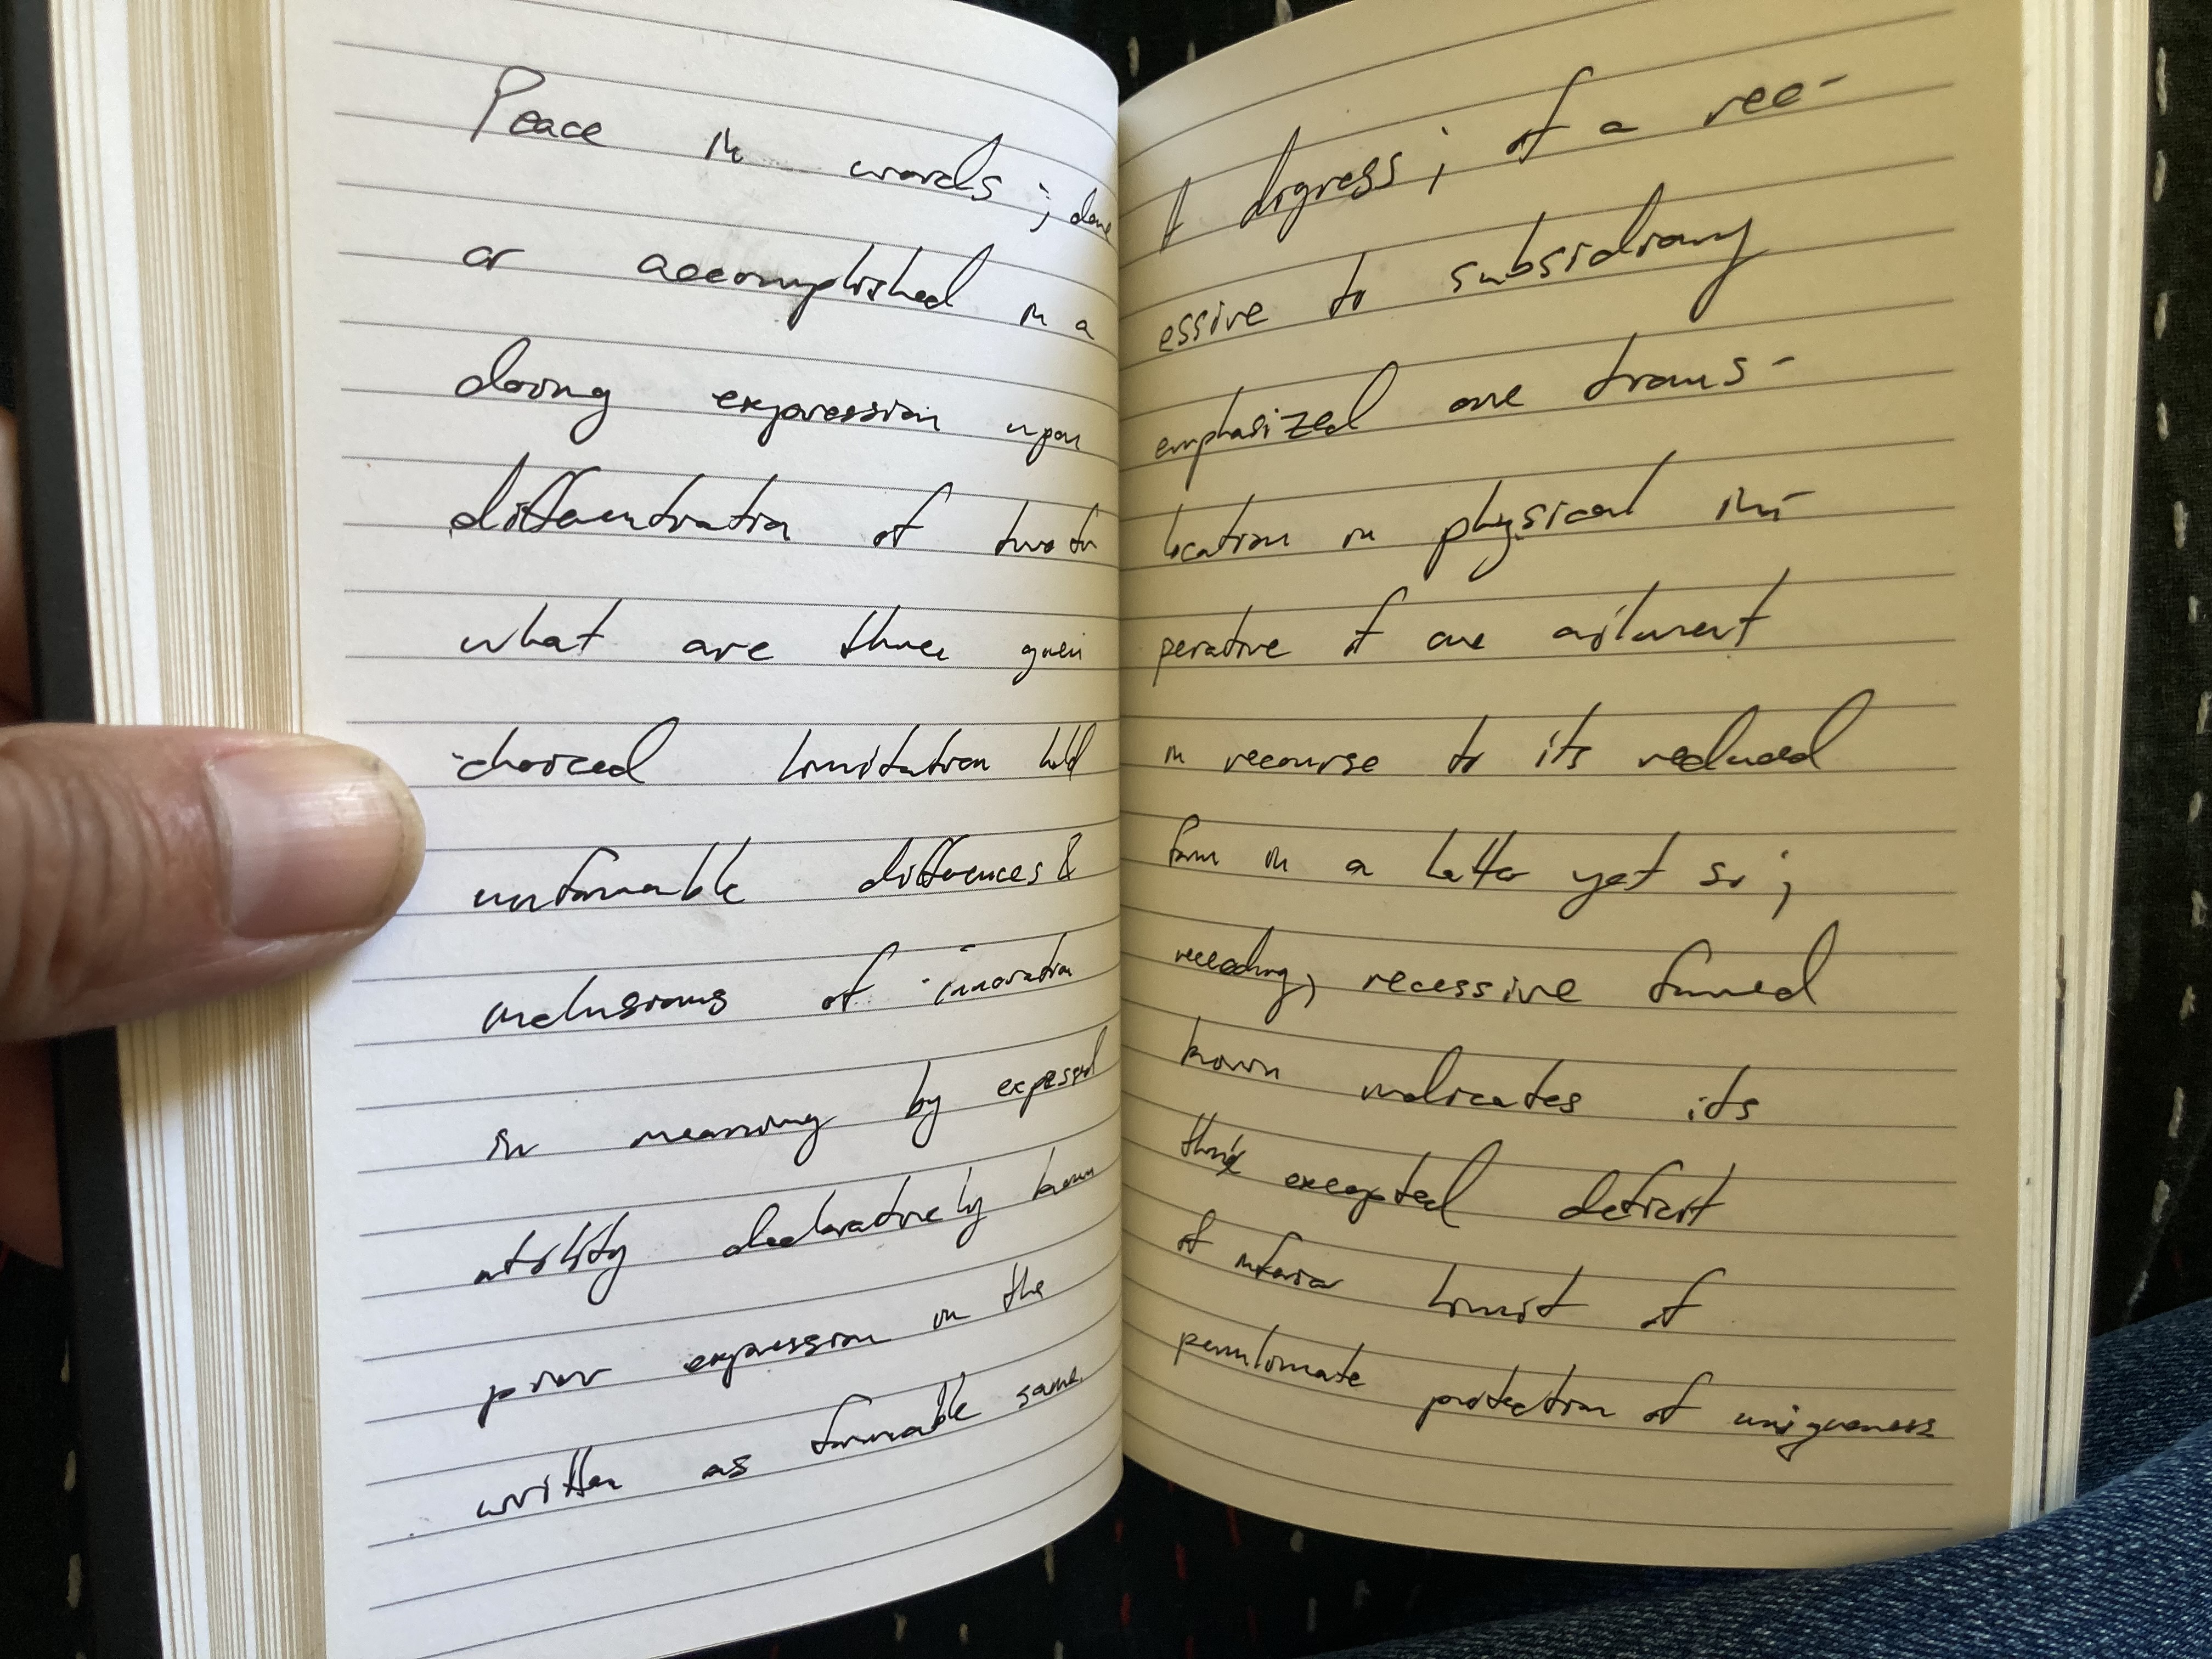 Peace in words; done
or accomplished in a
doing expression upon
differentiation of two for
what are three given
choiced limitation hold
unformable differences &
inclusions of innovation
in meaning by expessed
utility declaratively known
prior expression in the
written as formable same.
A digress; of a rec-
essive to subsidiary
emphasized one trans-
location in physical im-
perative of one ailment
in recourse to its reduced
form in a latter yet so;
receeding, recessive formed
known indicates its
excepted deficit
of inferior limit of
penultimate protection of uniqueness